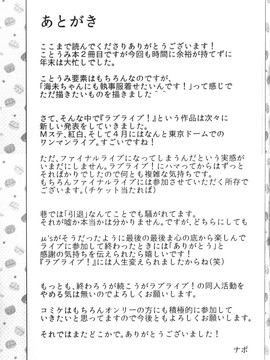 あとがき
ここまで読んでくださりありがとうございます！
ことうみ本2冊目ですが今回も時間に余裕が持てずに
年末は大忙しでした。
ことうみ要素はもちろんなのですが、
「海未ちゃんにも執事服着せたいんです！」って感じで
ただ描きたいものを描きました
さて、そんな中で『ラブライブ！』という作品は次々に
新しい発表をしていきました。
Mステ、紅白、そして4月にはなんと東京ドームでの
ワンマンライブ。すごいですね！
ただ、ファイナルライブになってしまうんだという実感が
いまだにしません。『ラブライブ！』にハマってからはずっと
そればかりでしたので何とも複雑な気持ちです。
もちろんファイナルライブには参加させていただく所存で
ございます。（チケット当たれば）
巷では「引退」なんてことでも騒がれてます。
それが嘘か本当かは分かりません。ですが、どちらにしても
μ'sがそうだったように最後の最後まで心の底から楽しんで
ライブに参加して終わったときには「ありがとう」と
感謝の気持ちを伝えられたら嬉しいです！
『ラブライブ！』には人生変えられましたからね（笑）
もっとも、終わろうが続こうがラブライブ！の同人活動を
やめる気は無いのでよろしくお願いします。
コミケはもちろんオンリーの方にも積極的に参加して
いきたいと思ってますので今後ともよろしくお願いします。
それではまたどこかで。ありがとうございました！
ナポ